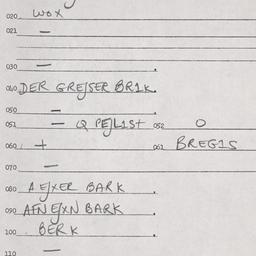 020 WOX
021 —
030 —
040 DER GREJSER BR1K.
050 —
051 — Q PEJL1ST 052 O
060 + 061 BREG1S
070 —
080 A EJXER BARK
090 AFN EJXN BARK
100 BERK
110 —